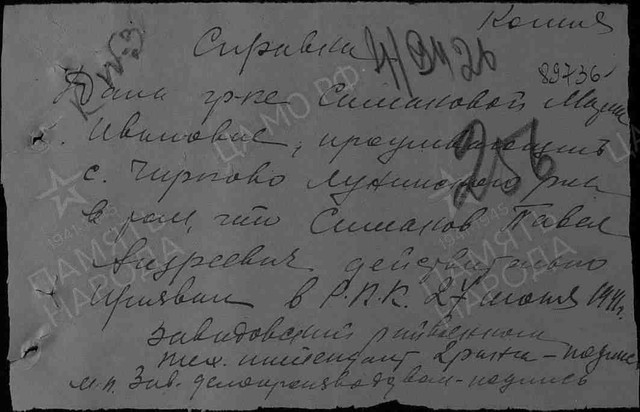 Копия
Справка
К №3
4/9426
89736
Дана гр-ке Симановой Марии
Ивановне, проживающей
256
с. Чирково Лунинского р-на
в том, что Симанов Павел
Андреевич действительно
призван в Р.К.К. 27 июня 1941г.
Завидовский райвоенком
тех. интендант 2 ранга - подпись
м.п. Зав. делопроизводством - подпись
ЦАМО РФ
1941-1945
ПАМЯТЬ
НАРОДА
ЦАМО РФ
1941-1945
ПАМЯТЬ
НАРОДА